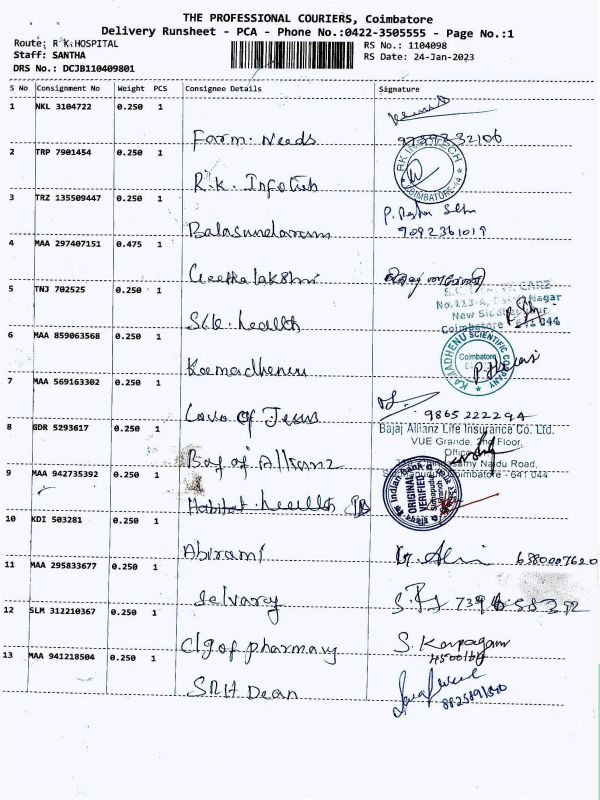 THE PROFESSIONAL COURIERS, Coimbatore
Delivery Runsheet - PCA - Phone No.:0422-3505555 - Page No.:1
Route: R K HOSPITAL
RS No.: 1104098
Staff: SANTHA
RS Date: 24-Jan-2023
DRS No.: DCJB110409801
S No Consignment No Weight PCS Consignee Details Signature
1 NKL 3104722 0.250 1
Farm. Needs
2 TRP 7901454 0.250 1
R.K. Infotech
3 TRZ 135509447 0.250 1
Balasundaram 9092361019
4 MAA 297407151 0.475 1
Geethalakshmi
5 TNJ 702525 0.250 1
No.113-A, Nagar
Coimbatore 641 044
health
6 MAA 859063568 0.250 1
KAMADHENU SCIENTIFIC COMPANY
Coimbatore
Kamadhenu
7 MAA 569163302 0.250 1
Love of Jesus 9865222294
8 GDR 5293617 0.250 1
Bajaj Allianz Life Insurance Co. Ltd.
VUE Grande, 2nd Floor,
Naidu Road,
Coimbatore - 641 044
9 MAA 942735392 0.250 1
Indian Bank
ORIGINAL VERIFIED
Habitat health
10 KDI 503281 0.250 1
Abirami 6380007620
11 MAA 295833677 0.250 1
Selvaraj
12 SLM 312210367 0.250 1
Clg of pharmacy S. Karpagam
13 MAA 941218504 0.250 1
SRH Dean